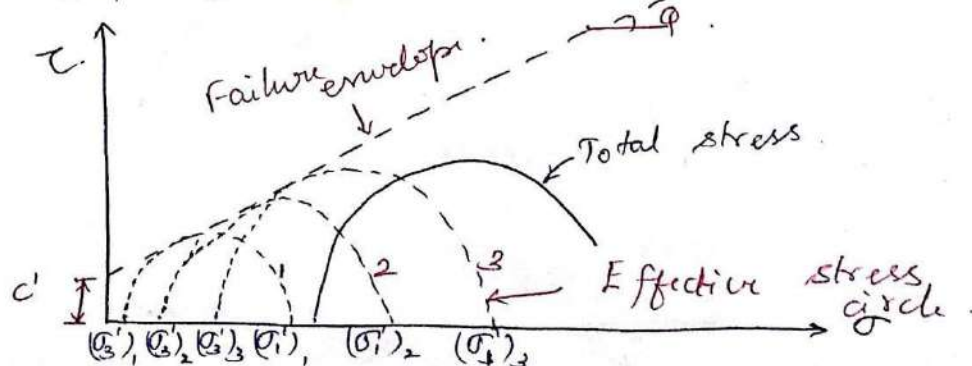 τ.
φ.
Failure envelope.
Total stress
1
2
3
c'
Effective stress circle.
(σ₃')₁ (σ₃')₂ (σ₃')₃ (σ₁')₁ (σ₁')₂ (σ₁')₃